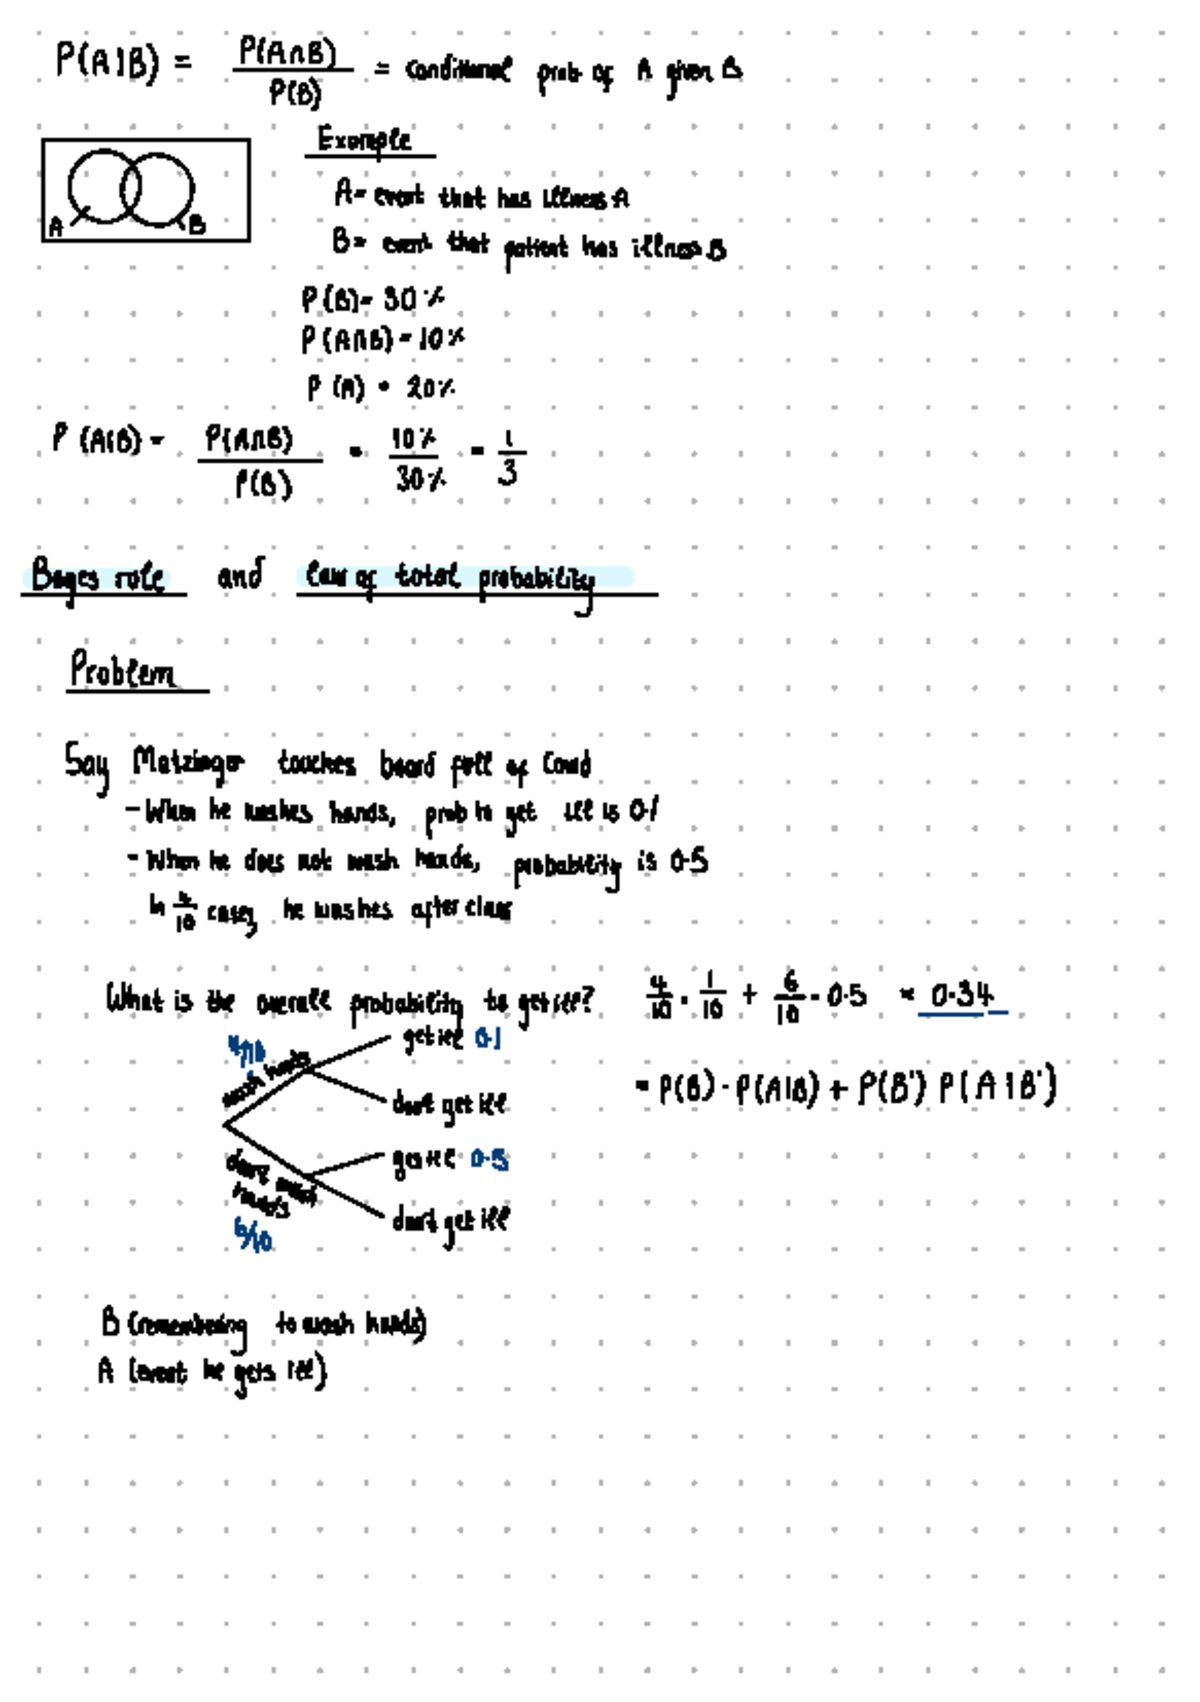 P(A|B) = P(A∩B) / P(B) = Conditional prob of A given B
Example
A = event that has illness A
A B
B = event that patient has illness B
P(B) = 30%
P(A∩B) = 10%
P(A) = 20%
P(A|B) = P(A∩B) / P(B) = 10% / 30% = 1/3
Bayes rule and law of total probability
Problem
Say Matzinger touches board full of Covid
- When he washes hands, prob to get ill is 0.1
- When he does not wash hands, probability is 0.5
In 4/10 cases he washes after class
What is the overall probability to get ill? 4/10 · 1/10 + 6/10 · 0.5 = 0.34
get ill 0.1
4/10
wash hands
= P(B) · P(A|B) + P(B') P(A|B')
don't get ill
get ill 0.5
don't wash
hands
don't get ill
6/10
B (remembering to wash hands)
A (event he gets ill)